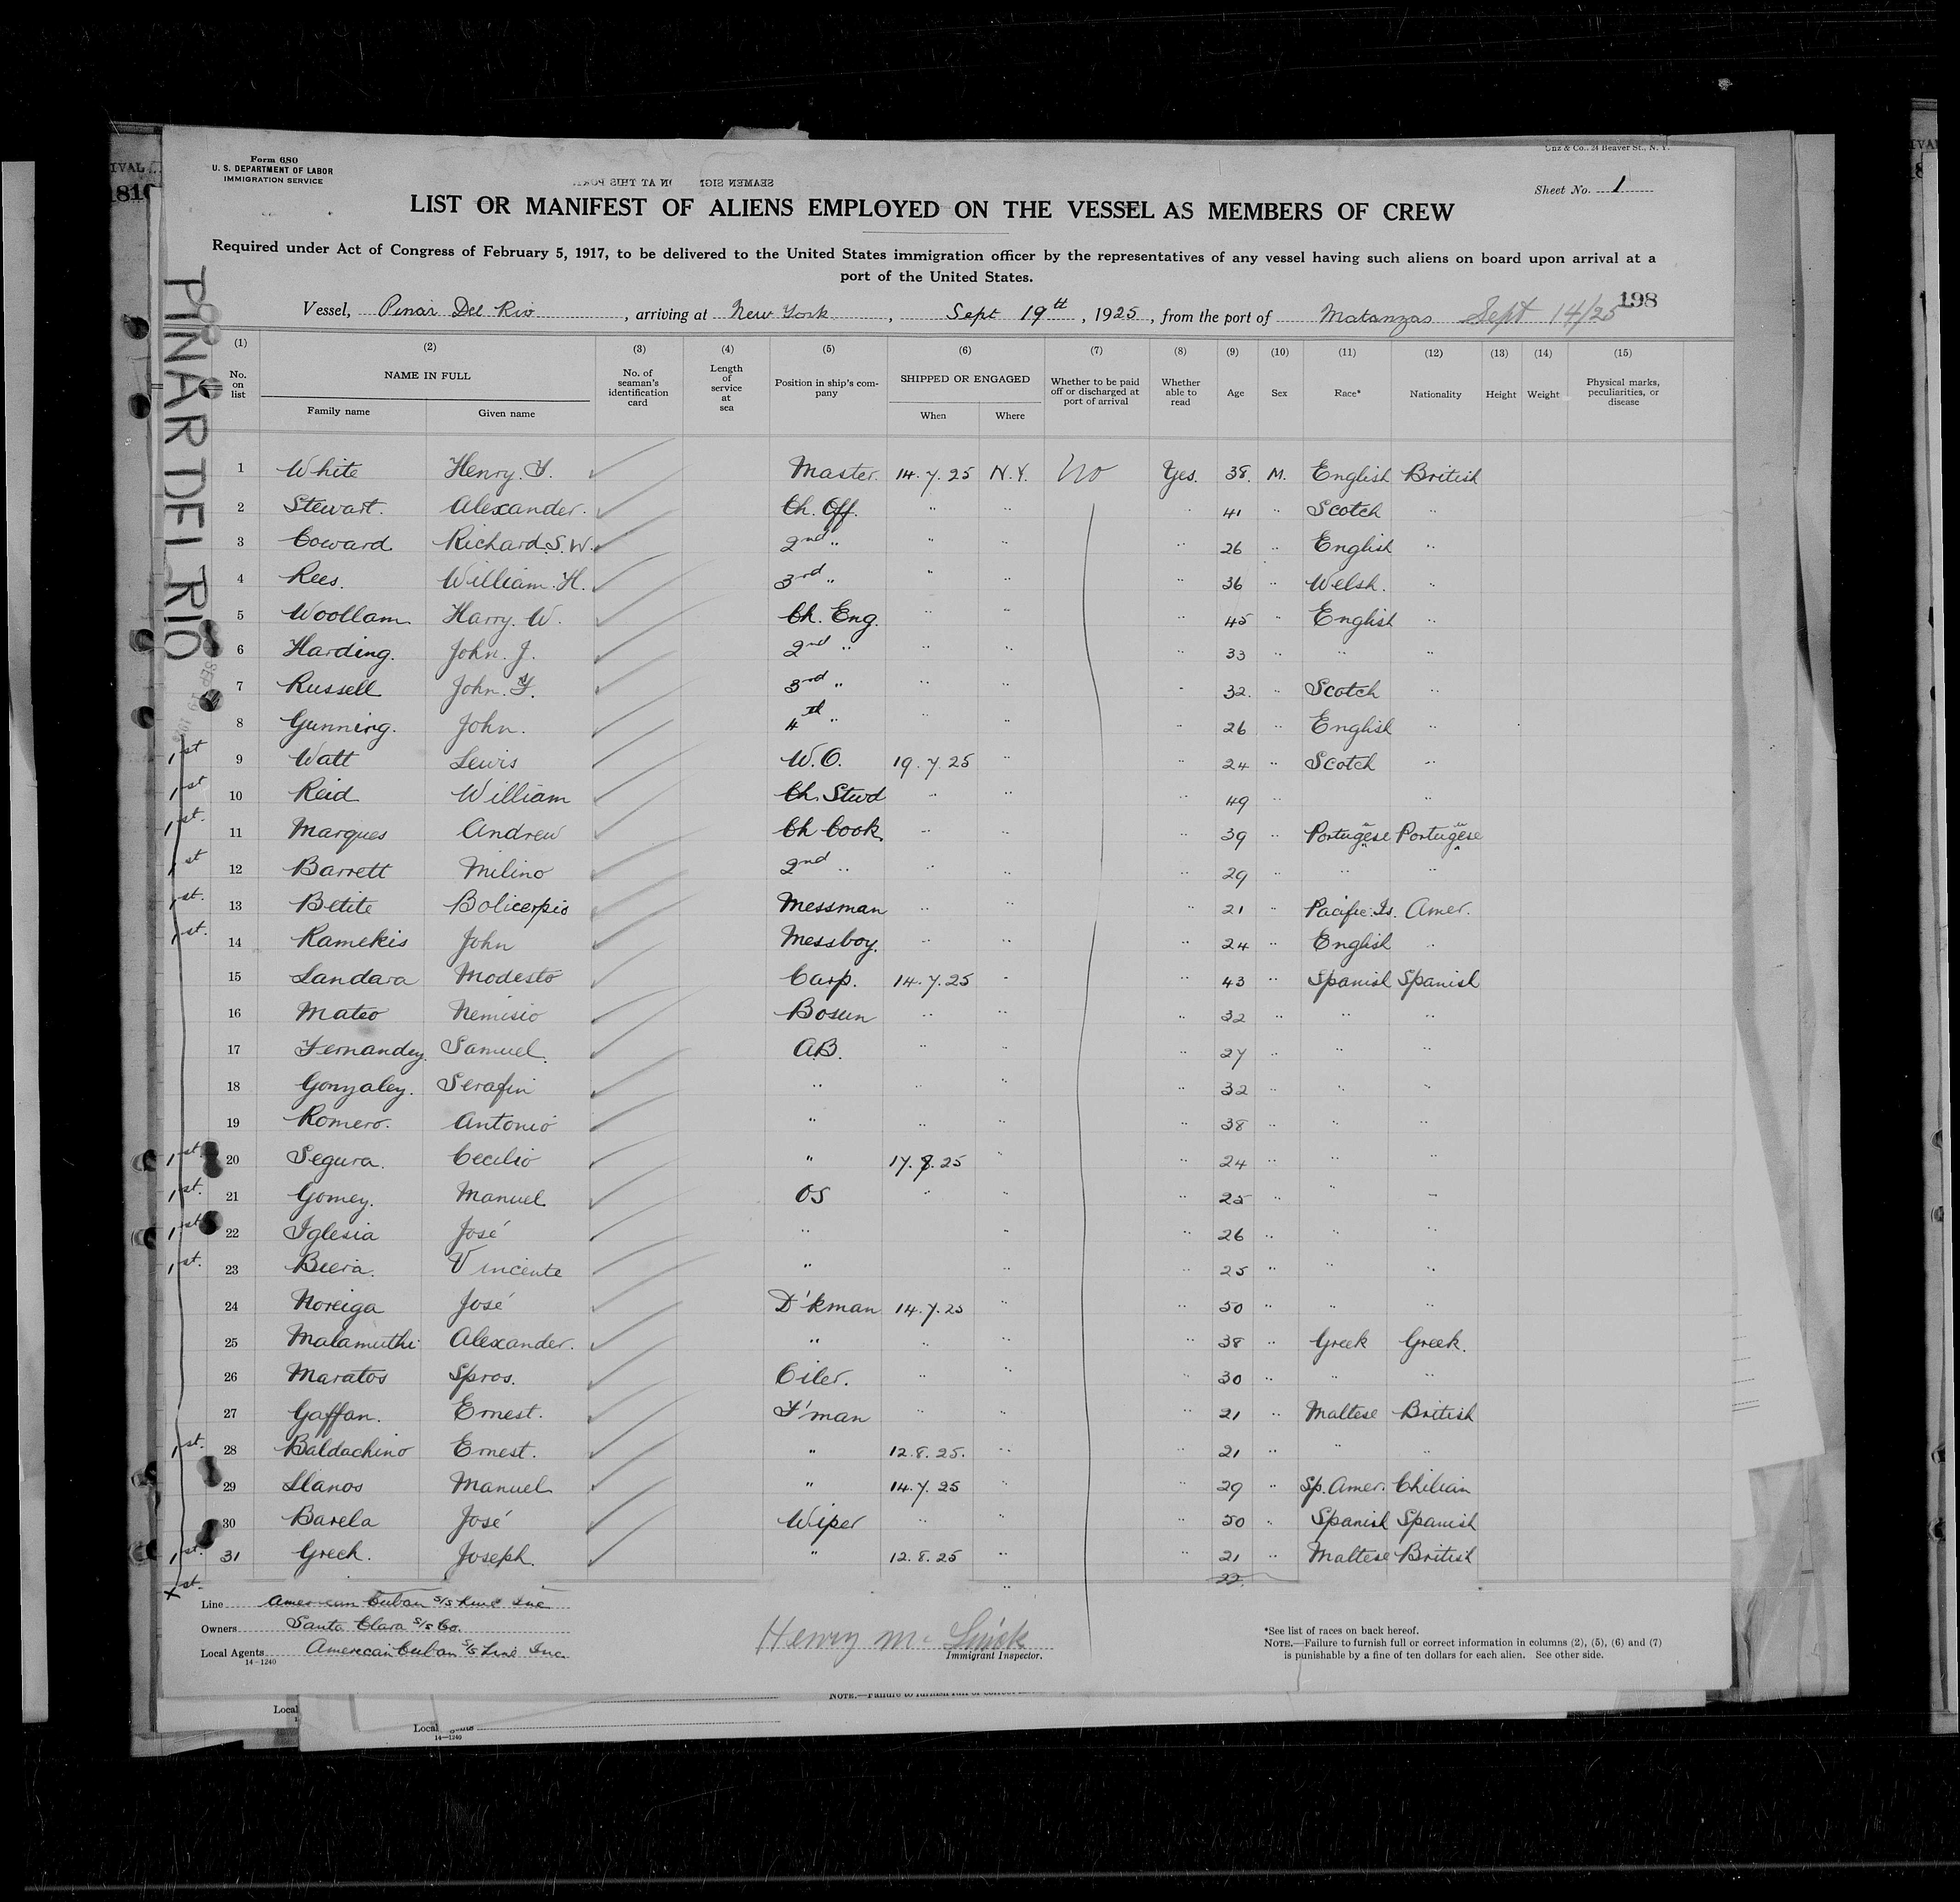 Form 680
U. S. DEPARTMENT OF LABOR
IMMIGRATION SERVICE
Unz & Co., 24 Beaver St., N. Y.
Sheet No. 1
LIST OR MANIFEST OF ALIENS EMPLOYED ON THE VESSEL AS MEMBERS OF CREW
Required under Act of Congress of February 5, 1917, to be delivered to the United States immigration officer by the representatives of any vessel having such aliens on board upon arrival at a
port of the United States.
198
Vessel, Pinar Del Rio, arriving at New York, Sept 19th, 1925, from the port of Matanzas Sept 14/25
PINAR DEL RIO
(1) (2) (3) (4) (5) (6) (7) (8) (9) (10) (11) (12) (13) (14) (15)
No. on list NAME IN FULL Family name Given name No. of seaman's identification card Length of service at sea Position in ship's company SHIPPED OR ENGAGED When Where Whether to be paid off or discharged at port of arrival Whether able to read Age Sex Race* Nationality Height Weight Physical marks, peculiarities, or disease
1 White Henry. F. Master. 14.7.25 N.Y. No Yes. 38. M. English British
2 Stewart. Alexander. Ch. Off. " " " 41 " Scotch "
3 Coward Richard. S. W. 2nd " " " " 26 " English "
4 Rees. William. H. 3rd " " " " 36 " Welsh. "
5 Woollam Harry. W. Ch. Eng. " " " 45 " English "
6 Harding. John. J. 2nd " " " " 33 " " "
7 Russell John. F. 3rd " " " " 32. " Scotch "
8 Gunning. John. 4th " " " " 26 " English "
1st 9 Watt Lewis W.O. 19.7.25 " " 24 " Scotch "
1st 10 Reid William Ch. Stwd " " " 49 " "
1st. 11 Marques Andrew Ch Cook " " " 39 " Portugese Portugese
1st 12 Barrett Milino 2nd " " " " 29 " " "
1st. 13 Betite Bolicerpio Messman " " " 21 " Pacific Is. Amer.
1st. 14 Ramekis John Messboy. " " " 24 " English "
15 Landara Modesto Carp. 14.7.25 " " 43 " Spanish Spanish
16 Mateo Nemisio Bosun " " " 32 " " "
17 Fernandez. Samuel. A.B. " " " 27 " " "
18 Gonzalez. Serafin " " " " 32 " " "
19 Romero. Antonio " " " " 38 " " "
1st 20 Segura. Cecilio " 17.8.25 " " 24 " " "
1st. 21 Gomez. Manuel OS " " " 25 " " "
1st 22 Iglesia José " " " 26 " " "
1st. 23 Biera. Vincente " " " 25 " " "
24 Noreiga José D'kman 14.7.25 " " 50 " " "
25 Malamuthi Alexander. " " " " 38 " Greek Greek.
26 Maratos Spros. Oiler. " " " 30 " " "
27 Gaffan. Ernest. F'man " " " 21 " Maltese British
1st. 28 Baldachino Ernest. " 12.8.25. " " 21 " " "
29 Llanos Manuel " 14.7.25 " " 29 " Sp. Amer. Chilian
30 Barela José Wiper " " " 50 " Spanish Spanish
1st. 31 Grech. Joseph. " 12.8.25 " " 21 " Maltese British
st. " 22
Line American Cuban S/S Line Inc
Owners Santa Clara S/S Co.
Local Agents American Cuban S/S Line Inc.
14-1240
Henry Mc
Immigrant Inspector.
*See list of races on back hereof.
NOTE.—Failure to furnish full or correct information in columns (2), (5), (6) and (7)
is punishable by a fine of ten dollars for each alien. See other side.
Local
Local Agents
14-1240